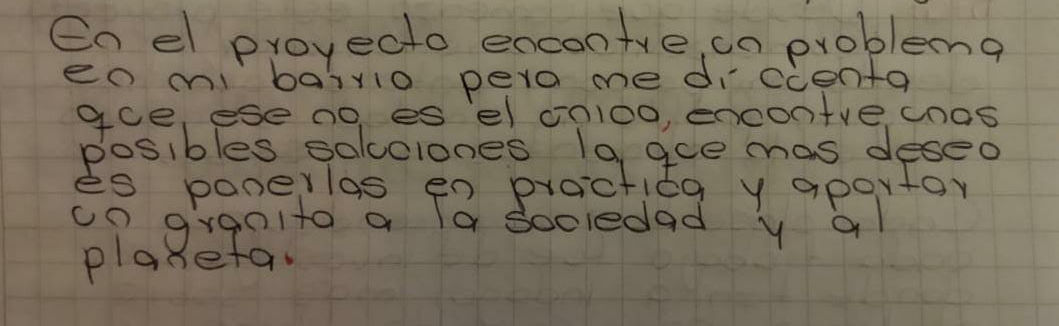 En el proyecto encontre, un problema
en mi barrio pero me di cuenta
que, ese no es el único, encontre unas
posibles soluciones la que mas deseo
es ponerlas en práctica y aportar
un granito a la sociedad y al
planeta.